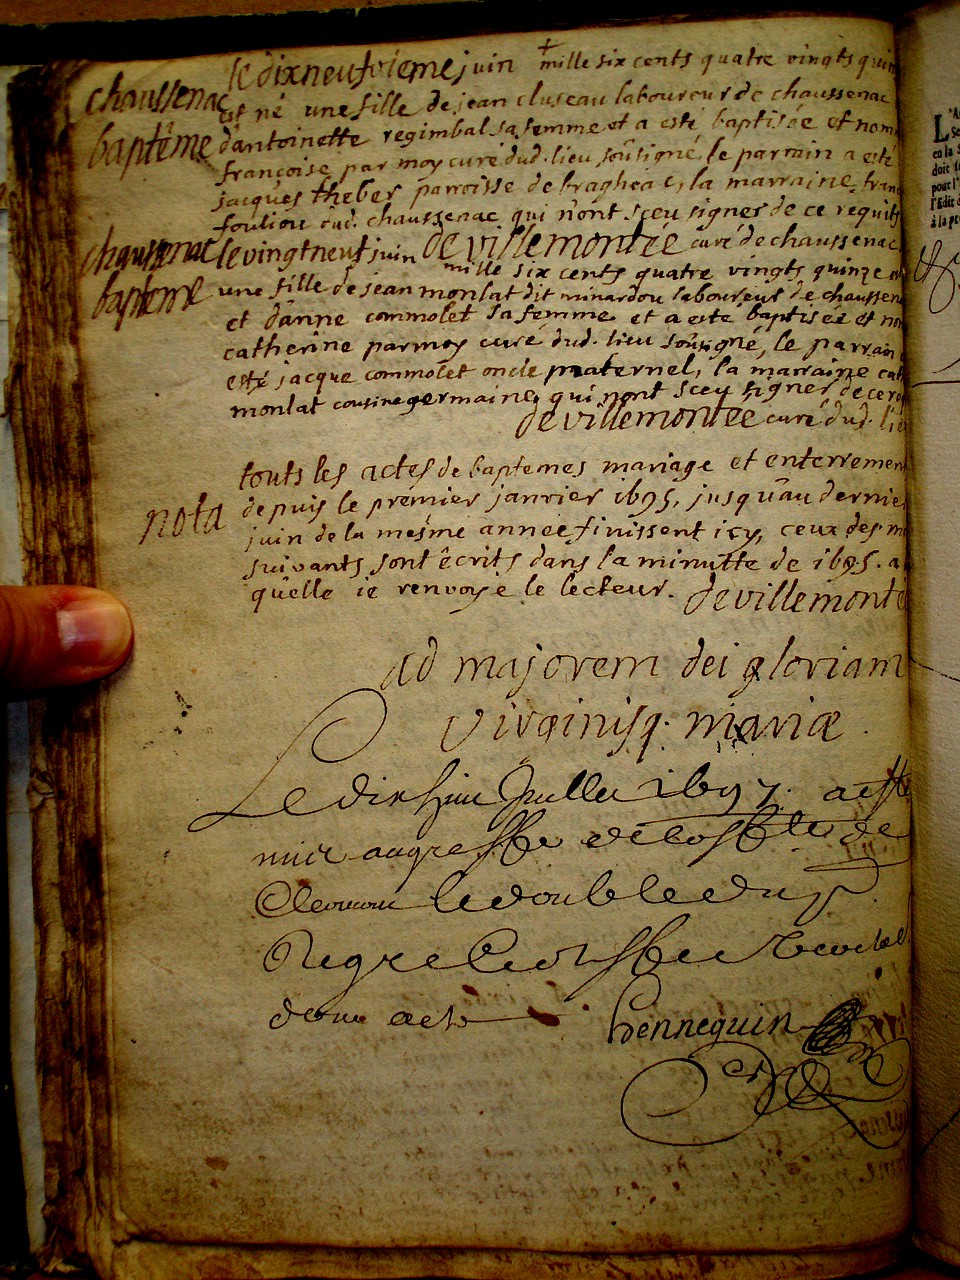 le dixneufvieme juin mille six cents quatre vingts quin
chaussenac
est né une fille de jean cluseau laboureur de chaussenac
baptême
d'antoinette regimbal sa femme et a esté baptisée et nom
françoise par moy curé dud. lieu soûsigné, le parrain a esté
jacques theber parroisse de bragheac, la marraine fran
fouliou dud. chaussenac qui n'ont sceu signer de ce requits
de villemontée curé de chaussenac
chaussenac
le vingt neuf juin mille six cents quatre vingts quinze e
bapteme
une fille de jean monlat dit minardou laboureur de chaussen
et d'anne commolet sa femme et a este baptisée et no
catherine par moy curé dud. lieu soûsigné, le parrain
esté jacque commolet oncle maternel, la marraine cat
monlat cousine germaine, qui n'ont sceu signer de ce re
de villemontée curé dud. lie
touts les actes de baptemes mariage et enterremen
nota
depuis le premier janvier 1695, jusqu'au dernie
juin de la mesme année finissent icy, ceux des m
suivants sont écrits dans la minutte de 1695. a
quelle ie renvoye le lecteur. de villemonté
ad majorem dei gloriam
virginisq. mariæ
Le dix huit Juillet 1697. a esté
mis au greffe
le double du p
Registre
dont acte
hennequin